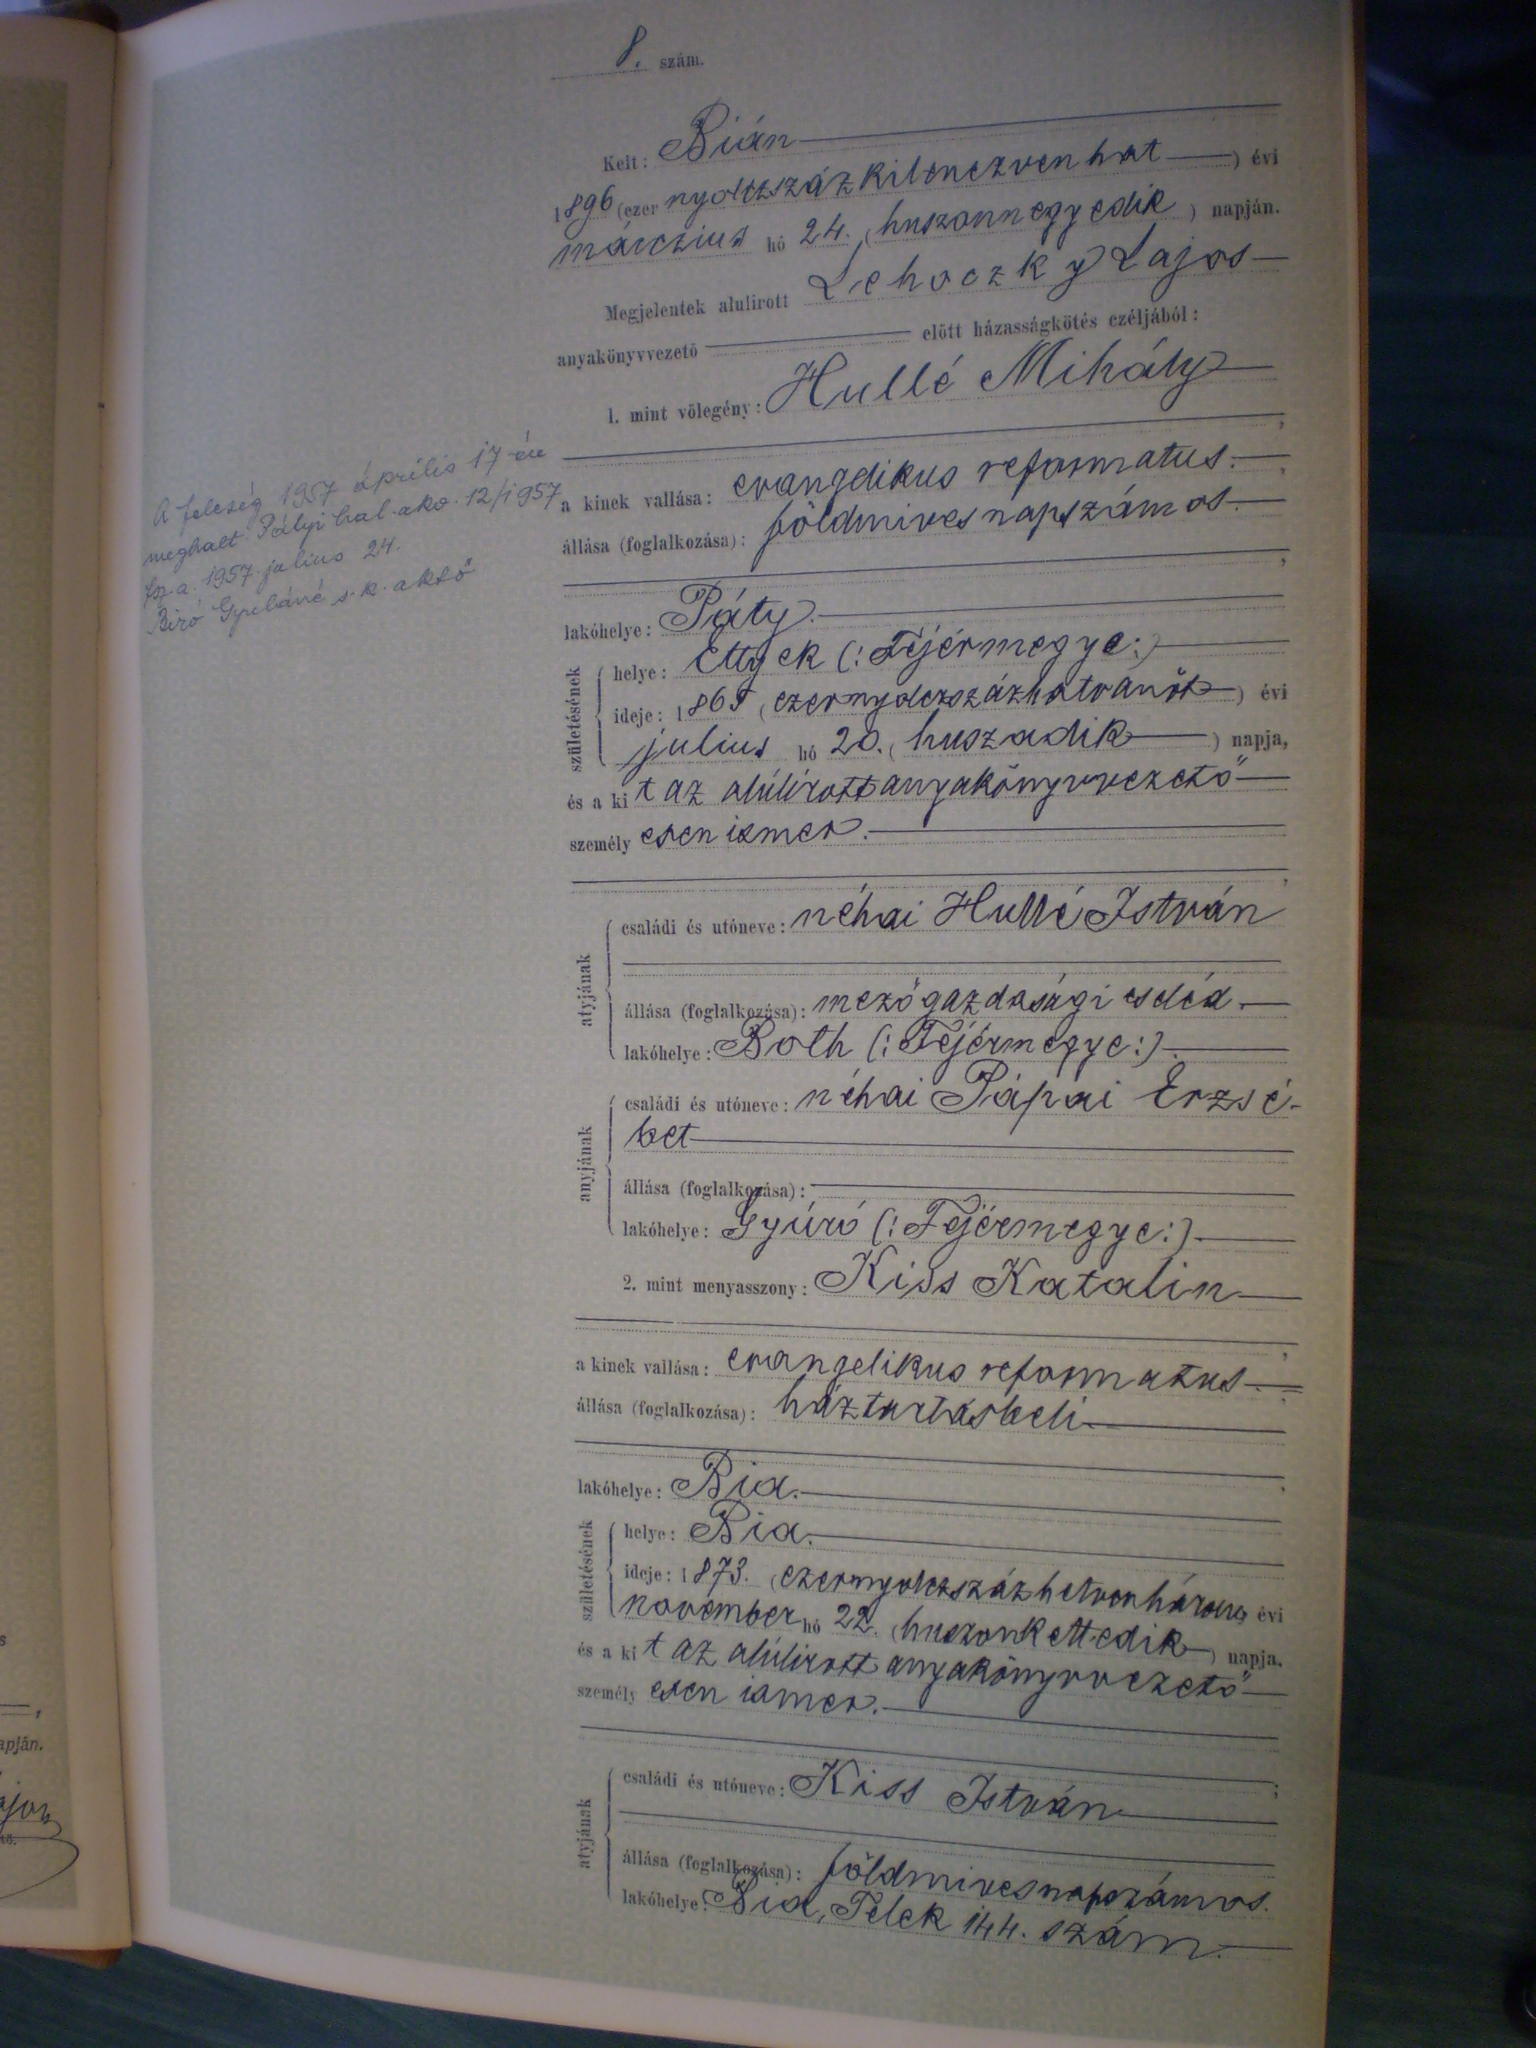 8. szám.
Kelt: Bián
1896 (ezer nyolczszázkilenczvenhat) évi
márczius hó 24. (huszonnegyedik) napján.
Megjelentek alulirott Lehoczky Lajos
anyakönyvvezető előtt házasságkötés czéljából:
1. mint vőlegény: Hullé Mihály
a kinek vallása: evangelikus reformatus.
állása (foglalkozása): földmives napszámos.
lakóhelye: Páty.
születésének
helye: Ettyek (: Fejérmegye:)
ideje: 1865 (ezernyolczszázhatvanöt) évi
julius hó 20. (huszadik) napja,
és a kit az alúlirott anyakönyvvezető
személyesen ismer.
atyjának
családi és utóneve: néhai Hullé István
állása (foglalkozása): mezőgazdasági cseléd.
lakóhelye: Both (: Fejérmegye:).
anyjának
családi és utóneve: néhai Pápai Erzsé-
bet
állása (foglalkozása):
lakóhelye: Gyúró (: Fejérmegye:).
2. mint menyasszony: Kiss Katalin
a kinek vallása: evangelikus reformatus
állása (foglalkozása): háztartásbeli
lakóhelye: Bia.
születésének
helye: Bia.
ideje: 1873. (ezernyolczszázhetvenhárom) évi
november hó 22. (huszonkettedik) napja,
és a kit az alúlirott anyakönyvvezető
személyesen ismer.
atyjának
családi és utóneve: Kiss István
állása (foglalkozása): földmives napszámos.
lakóhelye: Bia, Telek 144. szám.
A feleség 1957 április 17-én
meghalt. Pályi hal. ako. 12/1957
1957. julius 24.
Biró Gyuláné s.k. akvő
apján.